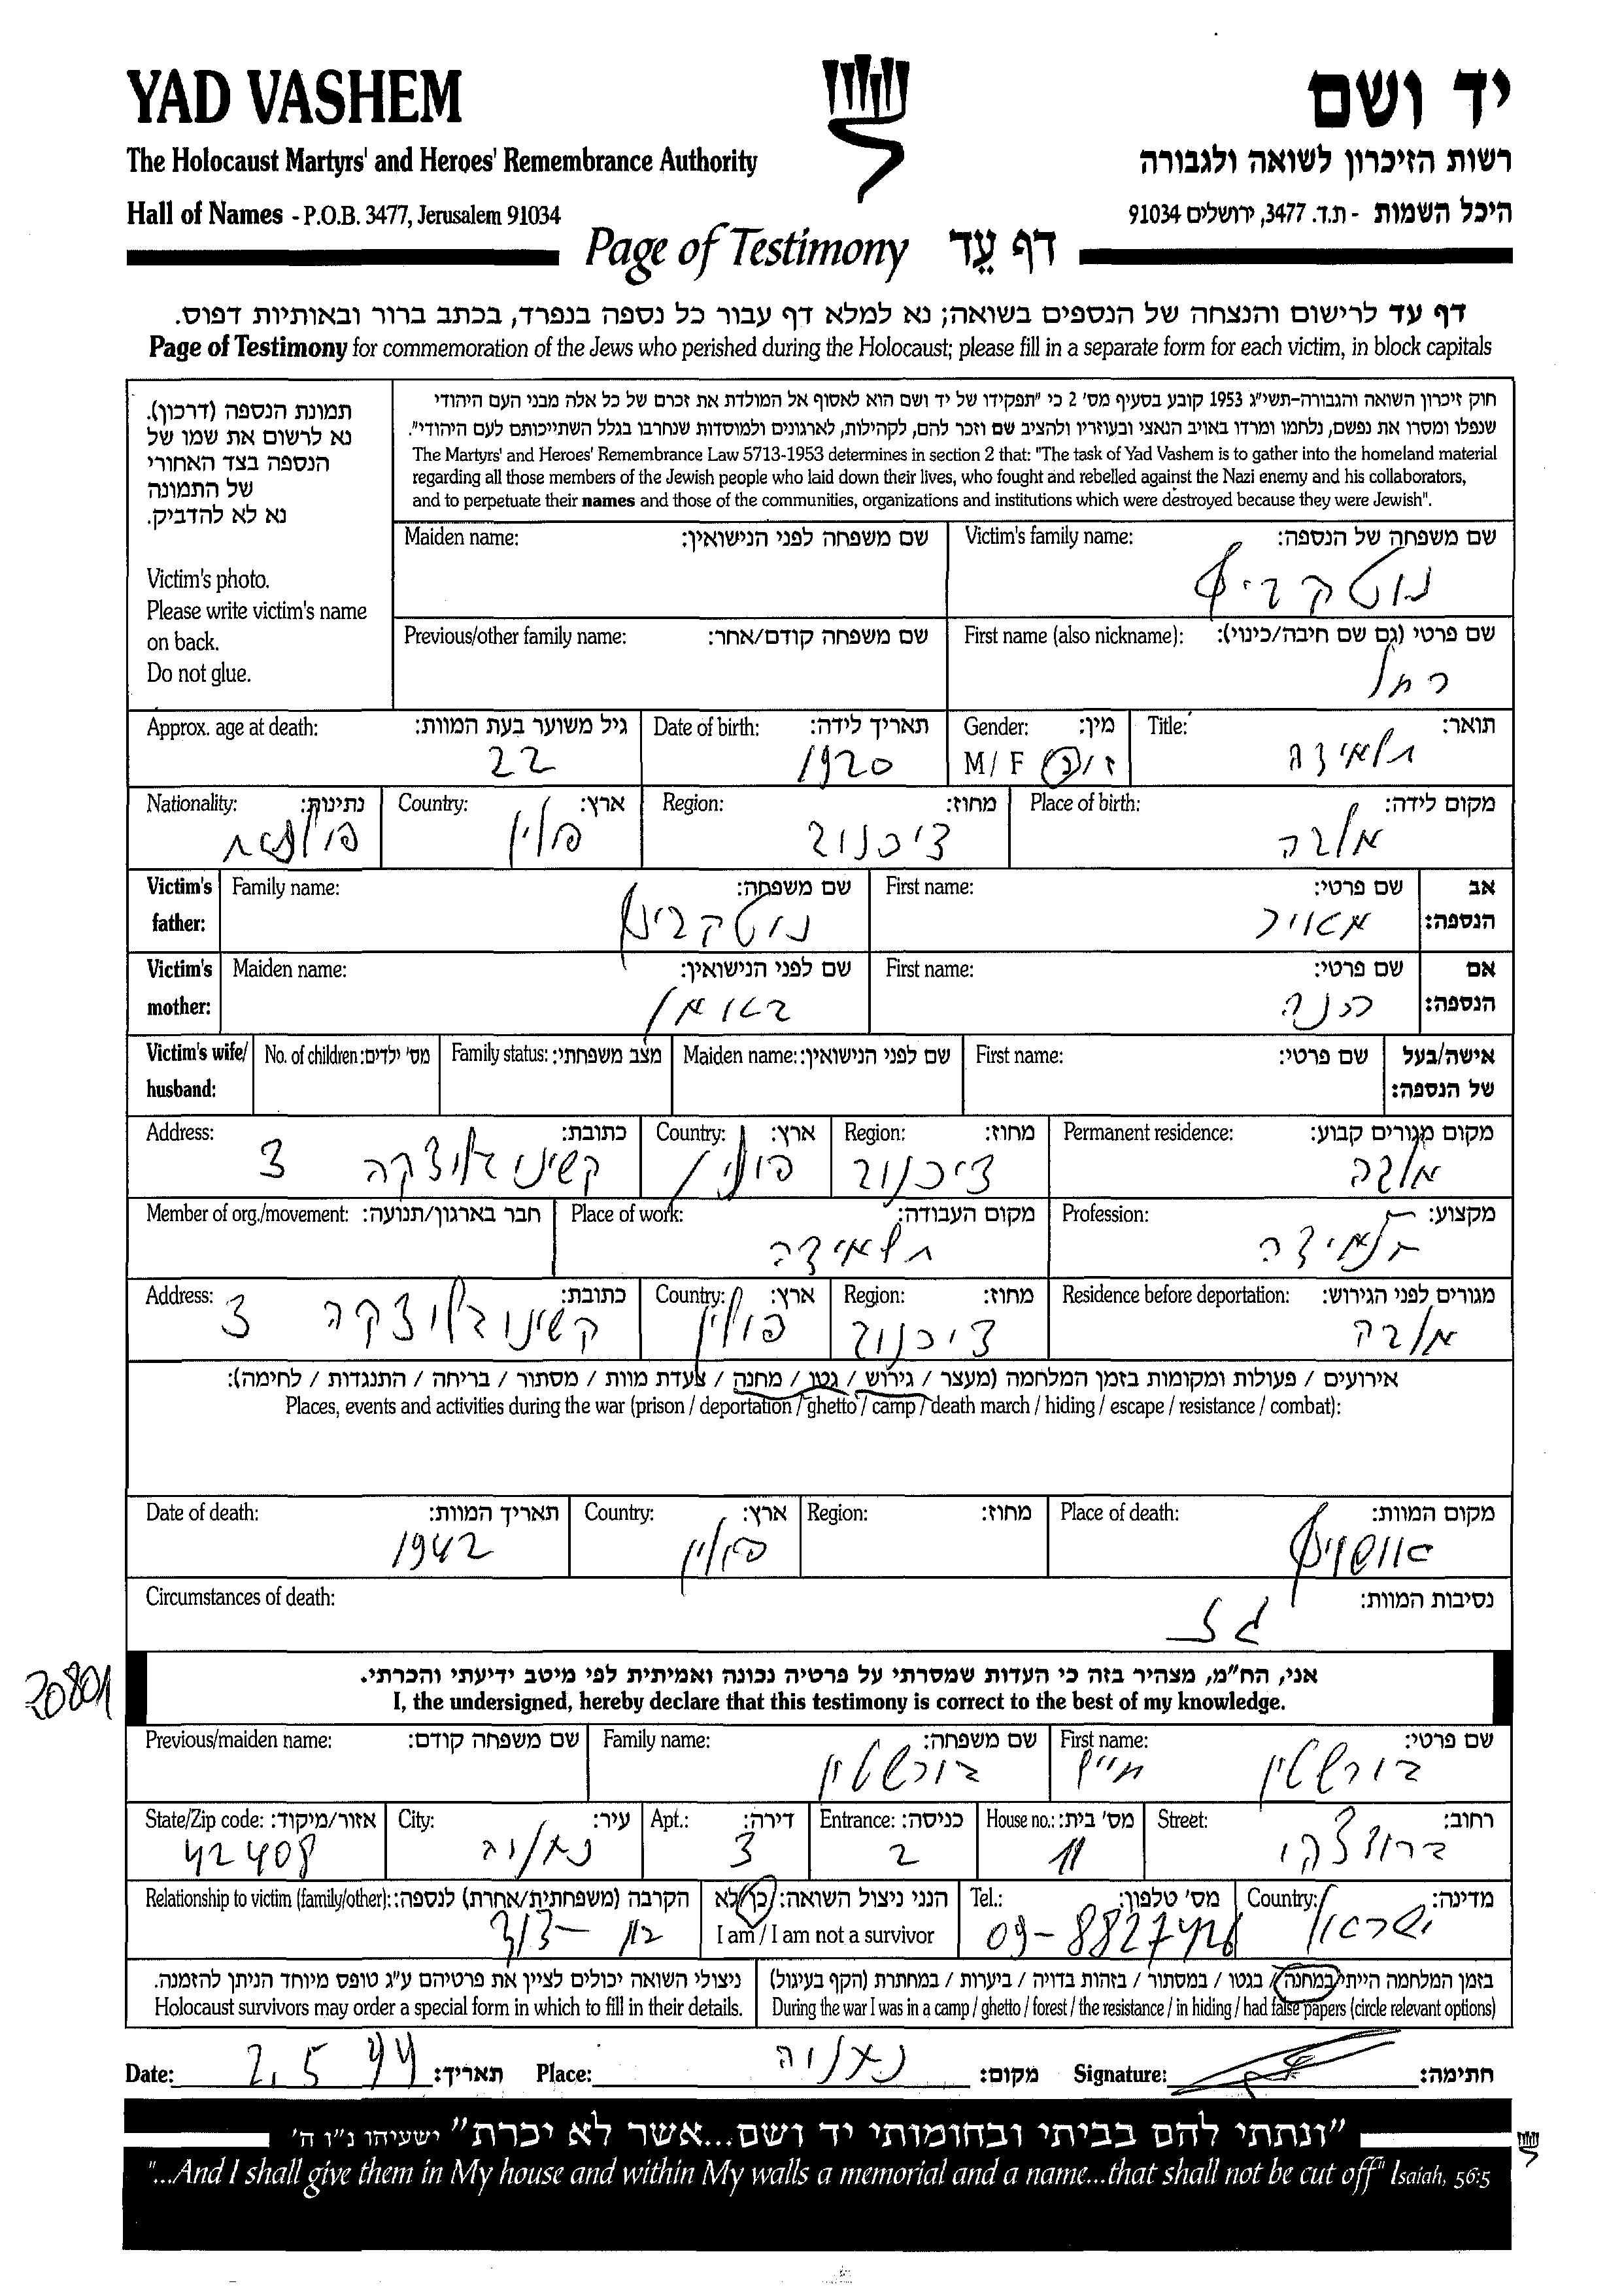 YAD VASHEM
יד ושם
The Holocaust Martyrs' and Heroes' Remembrance Authority
רשות הזיכרון לשואה ולגבורה
Hall of Names - P.O.B. 3477, Jerusalem 91034
היכל השמות - ת.ד. 3477, ירושלים 91034
Page of Testimony דף עֵד
דף עד לרישום והנצחה של הנספים בשואה; נא למלא דף עבור כל נספה בנפרד, בכתב ברור ובאותיות דפוס.
Page of Testimony for commemoration of the Jews who perished during the Holocaust; please fill in a separate form for each victim, in block capitals
תמונת הנספה (דרכון).
נא לרשום את שמו של
הנספה בצד האחורי
של התמונה
נא לא להדביק.
Victim's photo.
Please write victim's name
on back.
Do not glue.
חוק זיכרון השואה והגבורה-תשי"ג 1953 קובע בסעיף מס' 2 כי "תפקידו של יד ושם הוא לאסוף אל המולדת את זכרם של כל אלה מבני העם היהודי
שנפלו ומסרו את נפשם, נלחמו ומרדו באויב הנאצי ובעוזריו ולהציב שם וזכר להם, לקהילות, לארגונים ולמוסדות שנחרבו בגלל השתייכותם לעם היהודי".
The Martyrs' and Heroes' Remembrance Law 5713-1953 determines in section 2 that: "The task of Yad Vashem is to gather into the homeland material
regarding all those members of the Jewish people who laid down their lives, who fought and rebelled against the Nazi enemy and his collaborators,
and to perpetuate their names and those of the communities, organizations and institutions which were destroyed because they were Jewish".
Maiden name: שם משפחה לפני הנישואין:
Victim's family name: שם משפחה של הנספה:
נוטקביץ
Previous/other family name: שם משפחה קודם/אחר:
First name (also nickname): שם פרטי (גם שם חיבה/כינוי):
רחל
Approx. age at death: גיל משוער בעת המוות:
22
Date of birth: תאריך לידה:
1920
Gender: מין:
M / F ז / נ
Title: תואר:
תלמידה
Nationality: נתינות:
פולנית
Country: ארץ:
פולין
Region: מחוז:
ציכנוב
Place of birth: מקום לידה:
מלבה
Victim's father:
Family name: שם משפחה:
נוטקביץ
First name: שם פרטי:
מאיר
אב הנספה:
Victim's mother:
Maiden name: שם לפני הנישואין:
באומן
First name: שם פרטי:
חנה
אם הנספה:
Victim's wife/ husband:
No. of children: מס' ילדים:
Family status: מצב משפחתי:
Maiden name: שם לפני הנישואין:
First name: שם פרטי:
אישה/בעל של הנספה:
Address: כתובת:
3
Country: ארץ:
פולין
Region: מחוז:
ציכנוב
Permanent residence: מקום מגורים קבוע:
מלבה
Member of org./movement: חבר בארגון/תנועה:
Place of work: מקום העבודה:
תלמידה
Profession: מקצוע:
תלמידה
Address: כתובת:
3
Country: ארץ:
פולין
Region: מחוז:
ציכנוב
Residence before deportation: מגורים לפני הגירוש:
מלבה
אירועים / פעולות ומקומות בזמן המלחמה (מעצר / גירוש / גטו / מחנה / צעדת מוות / מסתור / בריחה / התנגדות / לחימה):
Places, events and activities during the war (prison / deportation / ghetto / camp / death march / hiding / escape / resistance / combat):
Date of death: תאריך המוות:
1942
Country: ארץ:
פולין
Region: מחוז:
Place of death: מקום המוות:
אוושויץ
Circumstances of death: נסיבות המוות:
גז
20801
אני, הח"מ, מצהיר בזה כי העדות שמסרתי על פרטיה נכונה ואמיתית לפי מיטב ידיעתי והכרתי.
I, the undersigned, hereby declare that this testimony is correct to the best of my knowledge.
Previous/maiden name: שם משפחה קודם:
Family name: שם משפחה:
בורשטין
First name: שם פרטי:
בורשטין
State/Zip code: אזור/מיקוד:
42408
City: עיר:
נתניה
Apt.: דירה:
3
Entrance: כניסה:
2
House no.: מס' בית:
11
Street: רחוב:
Relationship to victim (family/other): הקרבה (משפחתית/אחרת) לנספה:
בן-דוד
הנני ניצול השואה: כן/לא
I am / I am not a survivor
Tel.: מס' טלפון:
Country: מדינה:
ישראל
ניצולי השואה יכולים לציין את פרטיהם ע"ג טופס מיוחד הניתן להזמנה.
Holocaust survivors may order a special form in which to fill in their details.
בזמן המלחמה הייתי במחנה / בגטו / במסתור / בזהות בדויה / ביערות / במחתרת (הקף בעיגול)
During the war I was in a camp / ghetto / forest / the resistance / in hiding / had false papers (circle relevant options)
Date: 2.5.99 תאריך: Place: נתניה מקום: Signature: חתימה:
"ונתתי להם בביתי ובחומותי יד ושם...אשר לא יכרת" ישעיהו נ"ו ה'
"...And I shall give them in My house and within My walls a memorial and a name...that shall not be cut off" Isaiah, 56:5